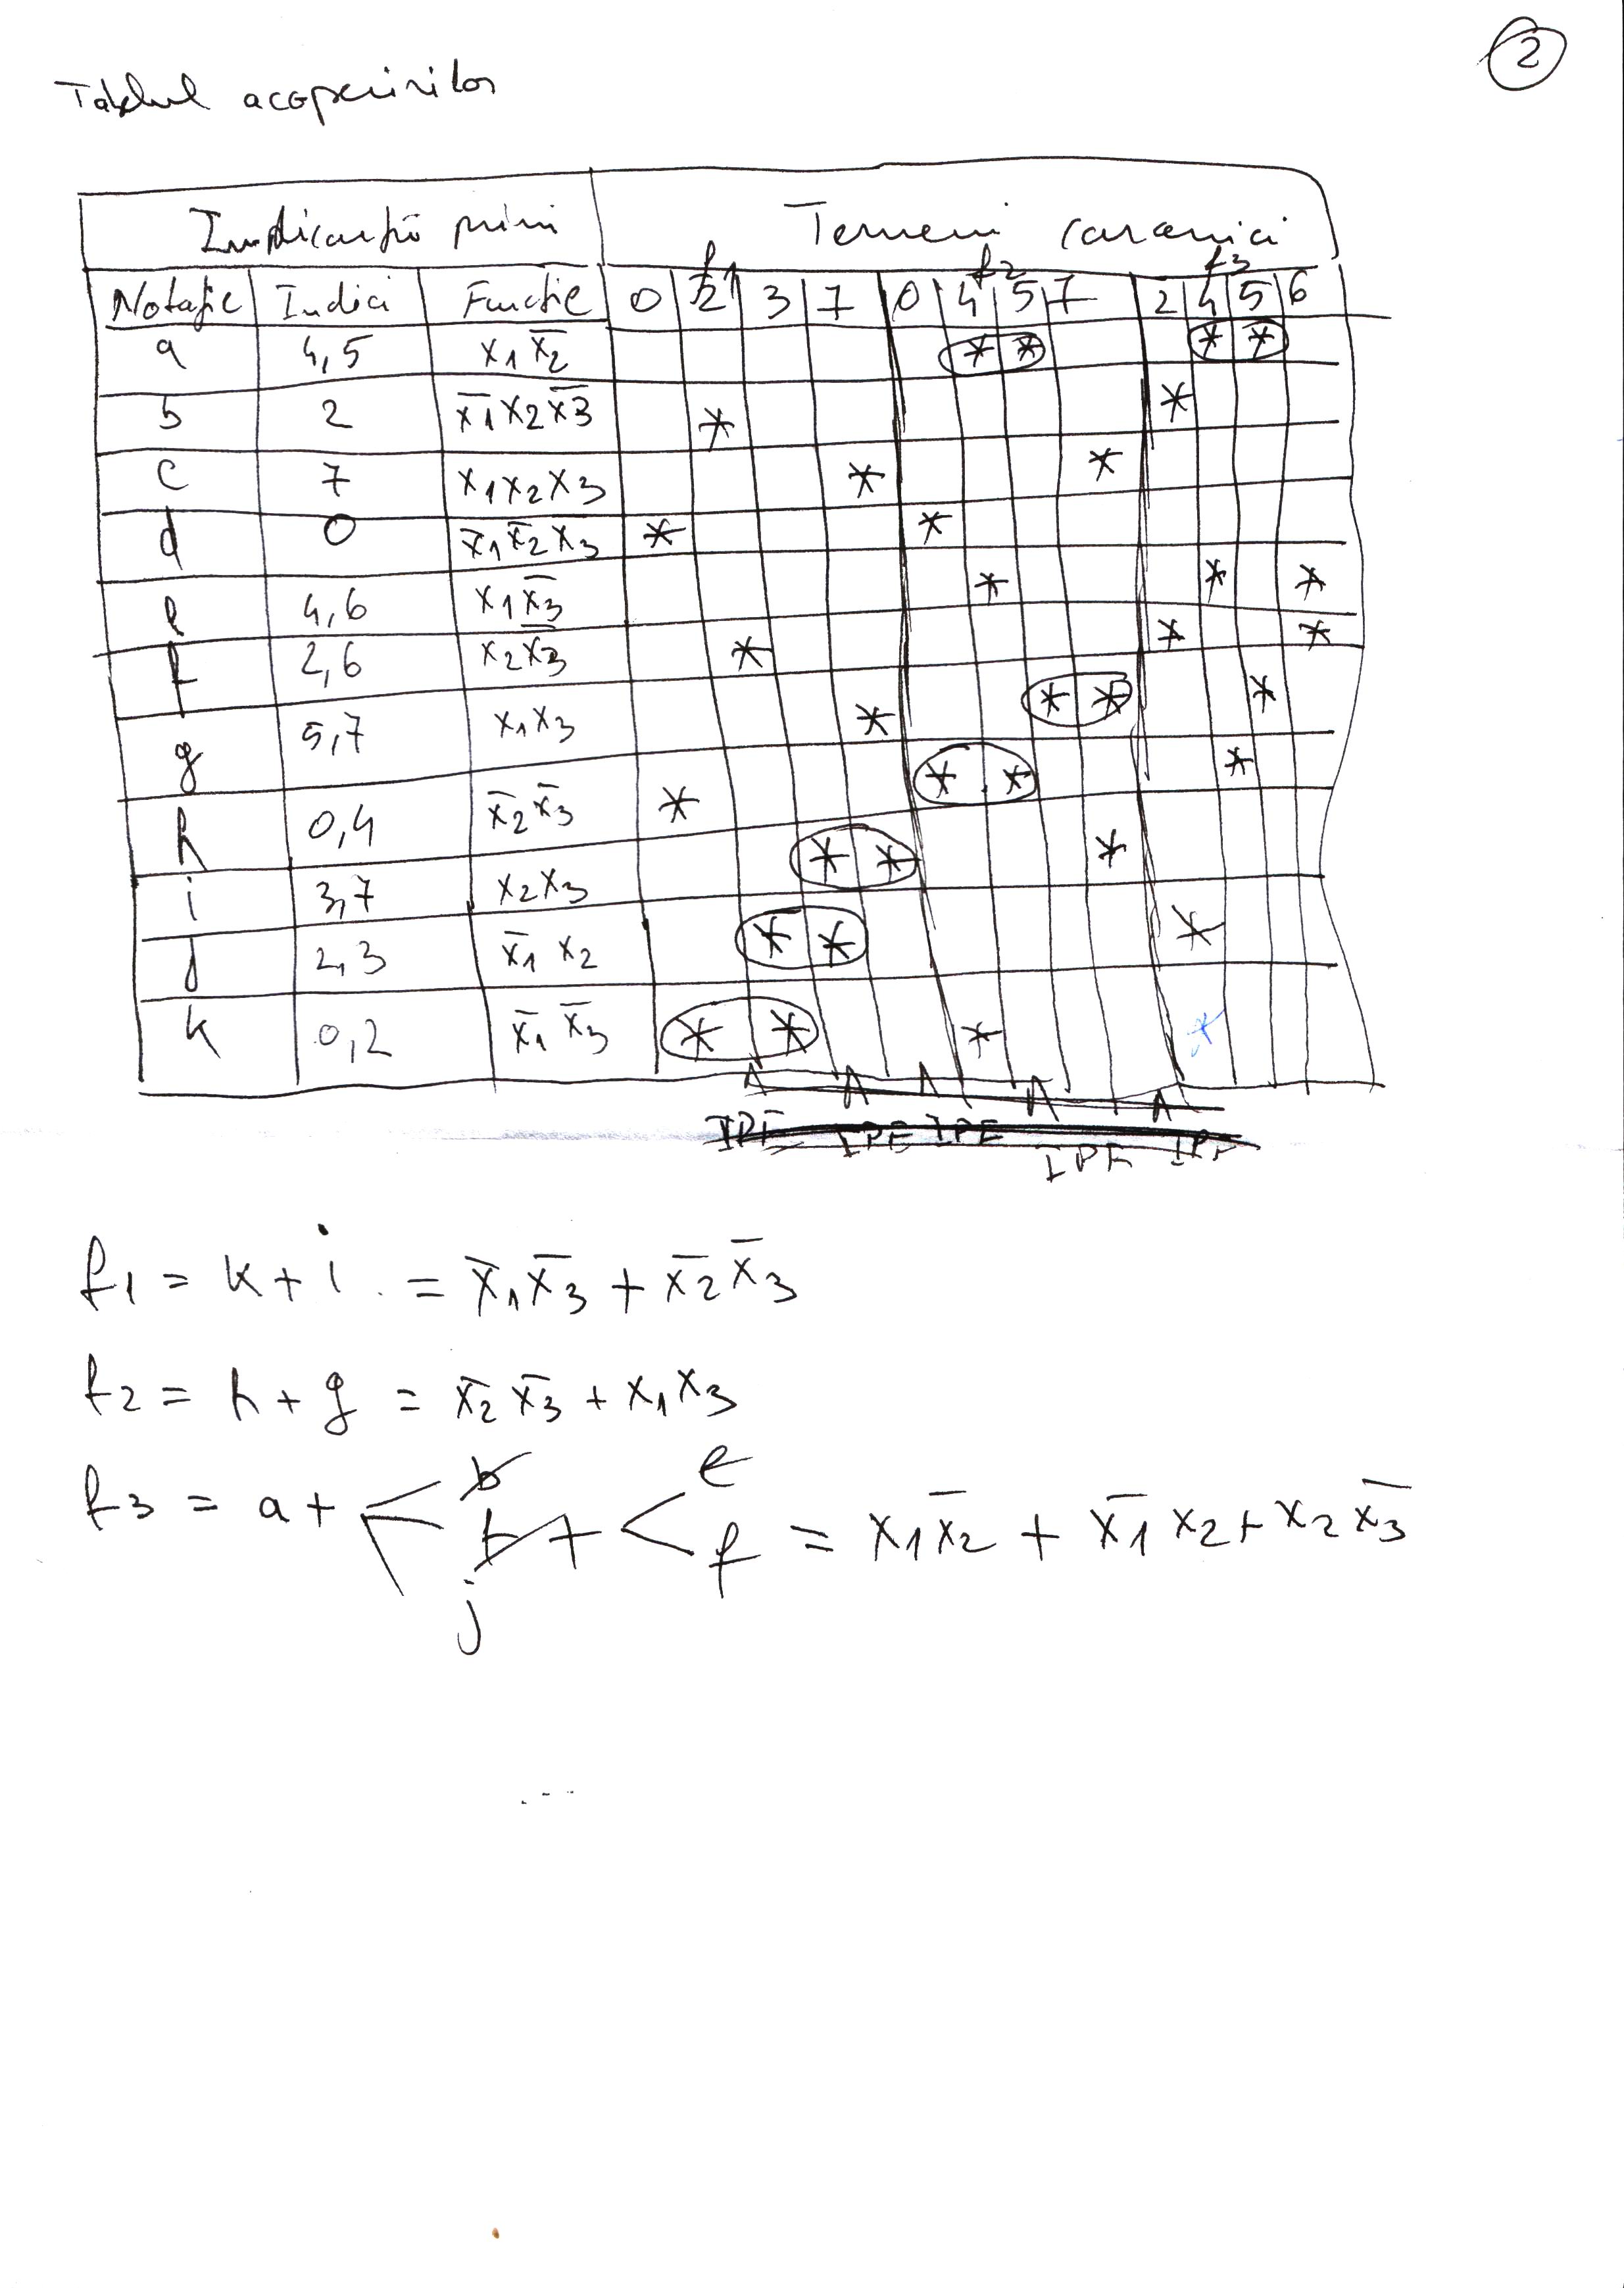 2
Tabelul acoperirilor
Implicanții primi Termeni canonici
f1 f2 f3
Notație Indici Funcție 0 2 3 7 0 4 5 7 2 4 5 6
a 4,5 x1x̅2 * * * *
b 2 x̅1x2x̅3 * *
c 7 x1x2x3 * *
d 0 x̅1x̅2x̅3 * *
e 4,6 x1x̅3 * * *
f 2,6 x2x̅3 * * *
g 5,7 x1x3 * * * *
h 0,4 x̅2x̅3 * * * *
i 3,7 x2x3 * * *
j 2,3 x̅1 x2 * * *
k 0,2 x̅1 x̅3 * * * *
IPE IPE IPE IPE IPE
f1 = k + i = x̅1x̅3 + x̅2x̅3
f2 = h + g = x̅2x̅3 + x1x3
f3 = a + < b f j + < e f = x1x̅2 + x̅1x2 + x2x̅3